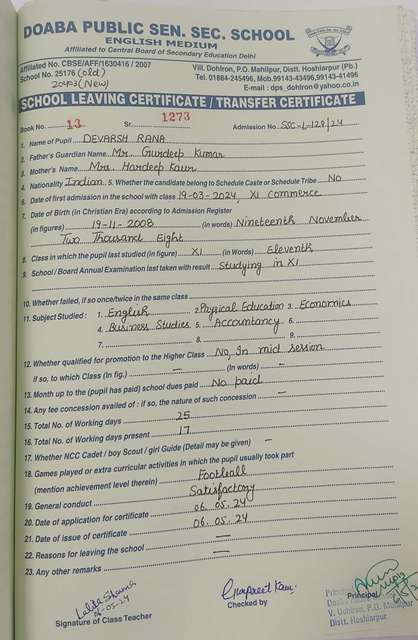 DOABA PUBLIC SEN. SEC. SCHOOL
ENGLISH MEDIUM
Affiliated to Central Board of Secondary Education Delhi
Affiliated No. CBSE/AFF/1630416 / 2007
Vill. Dohlron, P.O. Mahilpur, Distt. Hoshiarpur (Pb.)
School No. 25176 (old)
Tel. 01884-245496, Mob.99143-43496,99143-41496
20793 (New)
E-mail : dps_dohlron@yahoo.co.in
SCHOOL LEAVING CERTIFICATE / TRANSFER CERTIFICATE
Book No. 13 Sr. 1273 Admission No. SSC-L-128/24
1. Name of Pupil DEVARSH RANA
2. Father's Guardian Name Mr. Gurdeep Kumar
3. Mother's Name Mrs. Hardeep Kaur
4. Nationality Indian 5. Whether the candidate belong to Schedule Caste or Schedule Tribe No
6. Date of first admission in the school with class 19-03-2024, XI Commerce
7. Date of Birth (in Christian Era) according to Admission Register
(in figures) 19-11-2008 (in words) Nineteenth November
Two Thousand Eight
8. Class in which the pupil last studied (in figure) XI (in Words) Eleventh
9. School / Board Annual Examination last taken with result Studying in XI
10. Whether failed, if so once/twice in the same class
11. Subject Studied : 1. English 2. Physical Education 3. Economics
4. Business Studies 5. Accountancy 6.
7. 8. 9.
12. Whether qualified for promotion to the Higher Class No, In mid session
if so, to which Class (In fig.) — (In words) —
13. Month up to the (pupil has paid) school dues paid No paid
14. Any fee concession availed of : if so, the nature of such concession —
15. Total No. of Working days 25
16. Total No. of Working days present 17
17. Whether NCC Cadet / boy Scout / girl Guide (Detail may be given) —
18. Games played or extra curricular activities in which the pupil usually took part
(mention achievement level therein) Football
19. General conduct Satisfactory
20. Date of application for certificate 06.05.24
21. Date of issue of certificate 06.05.24
22. Reasons for leaving the school —
23. Any other remarks —
Lalita Sharma
06-05-24
Signature of Class Teacher
Harpreet Kaur
Checked by
Principal
Principal
V. Dohlron, P.O. Mahilpur
Distt. Hoshiarpur